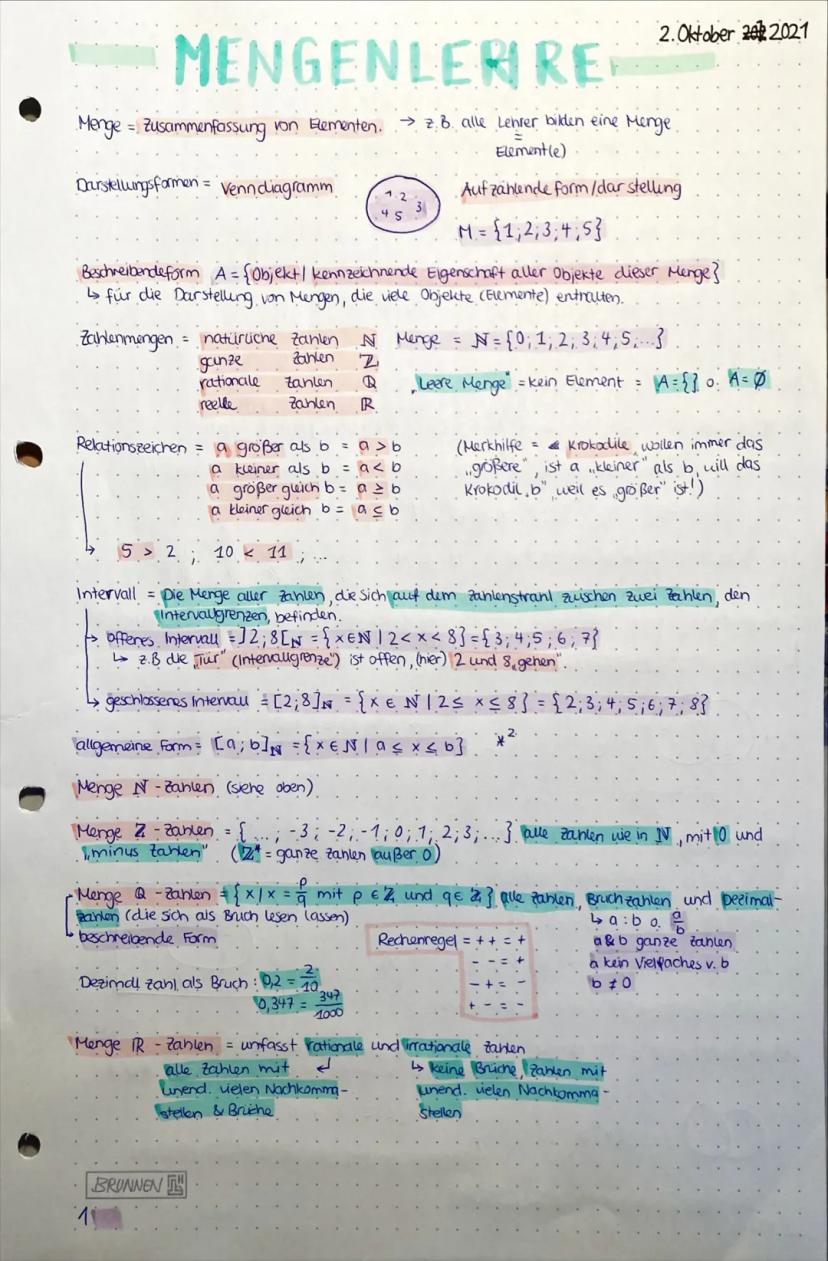 2. Oktober 2021
MENGENLEHRE
Menge = Zusammenfassung von Elementen. → z.B. alle Lehrer bilden eine Menge
=
Element(e)
Darstellungsformen = Venndiagramm
1 2
4 5 3
Aufzählende form/darstellung
M = {1;2;3;4;5}
Beschreibendeform A = {Objekt | kennzeichnende Eigenschaft aller Objekte dieser Menge}
↳ für die Darstellung von Mengen, die viele Objekte (Elemente) enthalten.
Zahlenmengen = natürliche Zahlen ℕ Menge = ℕ = {0; 1; 2; 3; 4; 5; ...}
ganze Zahlen ℤ
rationale Zahlen ℚ „Leere Menge" = kein Element = A = {} o. A = Ø
reelle Zahlen ℝ
Relationszeichen = a größer als b = a > b
a kleiner als b = a < b
a größer gleich b = a ≥ b
a kleiner gleich b = a ≤ b
(Merkhilfe = Krokodile, wollen immer das
„größere", ist a „kleiner" als b, will das
Krokodil „b", weil es „größer" ist!)
↳ 5 > 2 ; 10 < 11 ; ...
Intervall = Die Menge aller Zahlen, die sich auf dem Zahlenstrahl zwischen zwei Zahlen, den
Intervallgrenzen, befinden.
→ offenes Intervall = ]2;8[ℕ = {x ∈ ℕ | 2 < x < 8} = {3; 4; 5; 6; 7}
↳ z.B die „Tür" (Intervallgrenze") ist offen, (hier) 2 und 8 „gehen".
↳ geschlossenes Intervall = [2;8]ℕ = {x ∈ ℕ | 2 ≤ x ≤ 8} = {2; 3; 4; 5; 6; 7; 8}
allgemeine Form = [a;b]ℕ = {x ∈ ℕ | a ≤ x ≤ b} *²
Menge ℕ - Zahlen (siehe oben)
Menge ℤ - Zahlen = {...; -3; -2; -1; 0; 1; 2; 3; ...} alle Zahlen wie in ℕ, mit 0 und
„minus Zahlen" (ℤ* = ganze Zahlen außer 0)
Menge ℚ - Zahlen = {x | x = p/q mit p ∈ ℤ und q ∈ ℤ} alle Zahlen, Bruchzahlen und Dezimal-
zahlen (die sich als Bruch lesen lassen)
↳ beschreibende Form
↳ a : b o. a/b
a & b ganze Zahlen
a kein Vielfaches v. b
b ≠ 0
Rechenregel = + + = +
- - = +
- + = -
+ - = -
Dezimal zahl als Bruch : 0,2 = 2/10
0,347 = 347/1000
Menge ℝ - Zahlen = umfasst rationale und irrationale Zahlen
alle Zahlen mit
unend. vielen Nachkomma-
stellen & Brüche
↳ keine Brüche, Zahlen mit
unend. vielen Nachkomma-
stellen
BRUNNEN
1